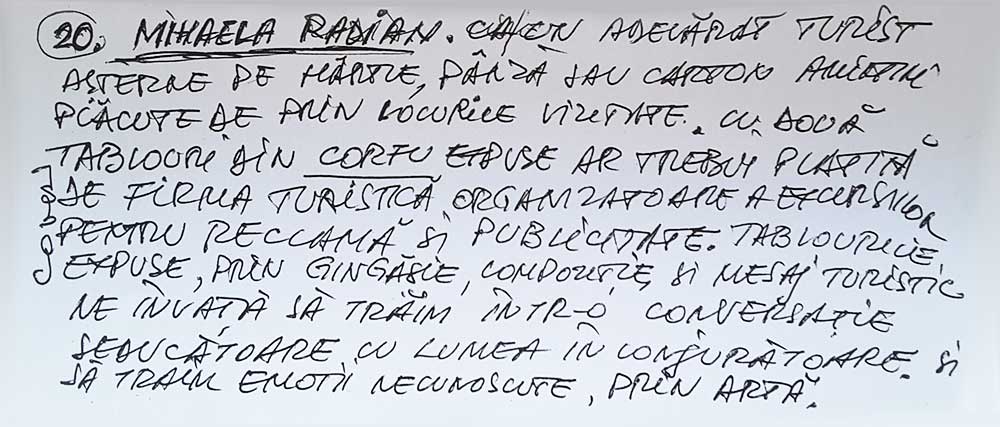 20. MIHAELA RADIAN. CA UN ADEVĂRAT TURIST
AȘTERNE PE HÂRTIE, PÂNZĂ SAU CARTON AMINTIRI
PLĂCUTE DE PRIN LOCURILE VIZITATE. CU DOUĂ
TABLOURI DIN CORFU EXPUSE AR TREBUI PLĂTITĂ
DE FIRMA TURISTICĂ ORGANIZATOARE A EXCURSIILOR
PENTRU RECLAMĂ ȘI PUBLICITATE. TABLOURILE
EXPUSE, PRIN GINGĂȘIE, COMPOZIȚIE, ȘI MESAJ TURISTIC
NE ÎNVAȚĂ SĂ TRĂIM ÎNTR-O CONVERSAȚIE
SEDUCĂTOARE CU LUMEA ÎNCONJURĂTOARE. ȘI
SĂ TRĂIM EMOȚII NECUNOSCUTE, PRIN ARTĂ.